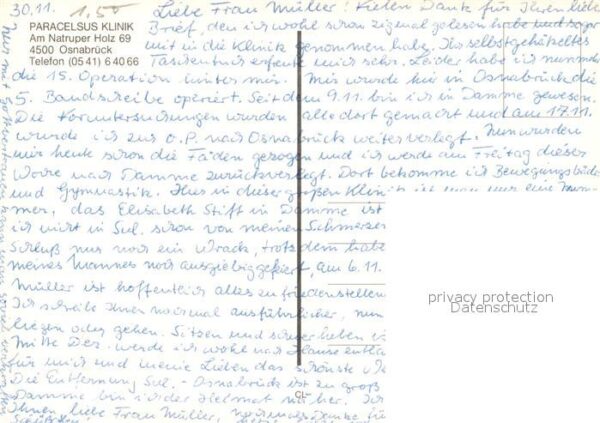 30.11. 1.50
PARACELSUS KLINIK
Am Natruper Holz 69
4500 Osnabrück
Telefon (05 41) 6 40 66
Liebe Frau Müller! Vielen Dank für Ihren liebe
Brief, den ich wohl schon zigmal gelesen habe und sogar
mit in die Klinik genommen habe. Ihr selbstgehäkeltes
Taschentuch erfreute mich sehr. Leider habe ich nunmehr
die 15. Operation hinter mir. Mir wurde hier in Osnabrück die
5. Bandscheibe operiert. Seit dem 9.11. bin ich in Damme gewesen.
Die Voruntersuchungen wurden alle dort gemacht und am 17.11.
wurde ich zur O.P. nach Osnabrück weiterverlegt. Nun wurden
mir heute schon die Fäden gezogen und ich werde am Freitag dieser
Woche nach Damme zurückverlegt. Dort bekomme ich Bewegungsbäder
und Gymnastik. Hier in dieser großen Klinik ist man nur eine Num-
mer, das Elisabeth Stift in Damme ist
ich nicht in Sul. schon von meinen Schmerzen
Schluß nur noch ein Wrack, trotzdem habe
meines Mannes noch ausgiebig gefeiert, am 6.11.
Müller ist hoffentlich alles zufriedenstellen
Ich schreibe Ihnen noch mal ausführlicher, nun
liegen oder gehen. Sitzen und schwer heben
Mitte Dez. werde ich wohl nach Hause entla
für mich und meine Lieben das schönste
Die Entfernung Sul. - Osnabrück ist zu groß
Damme bin ich der Heimat näher. Ich
Ihnen liebe Frau Müller, nochmals Danke für
privacy protection
Datenschutz
CL